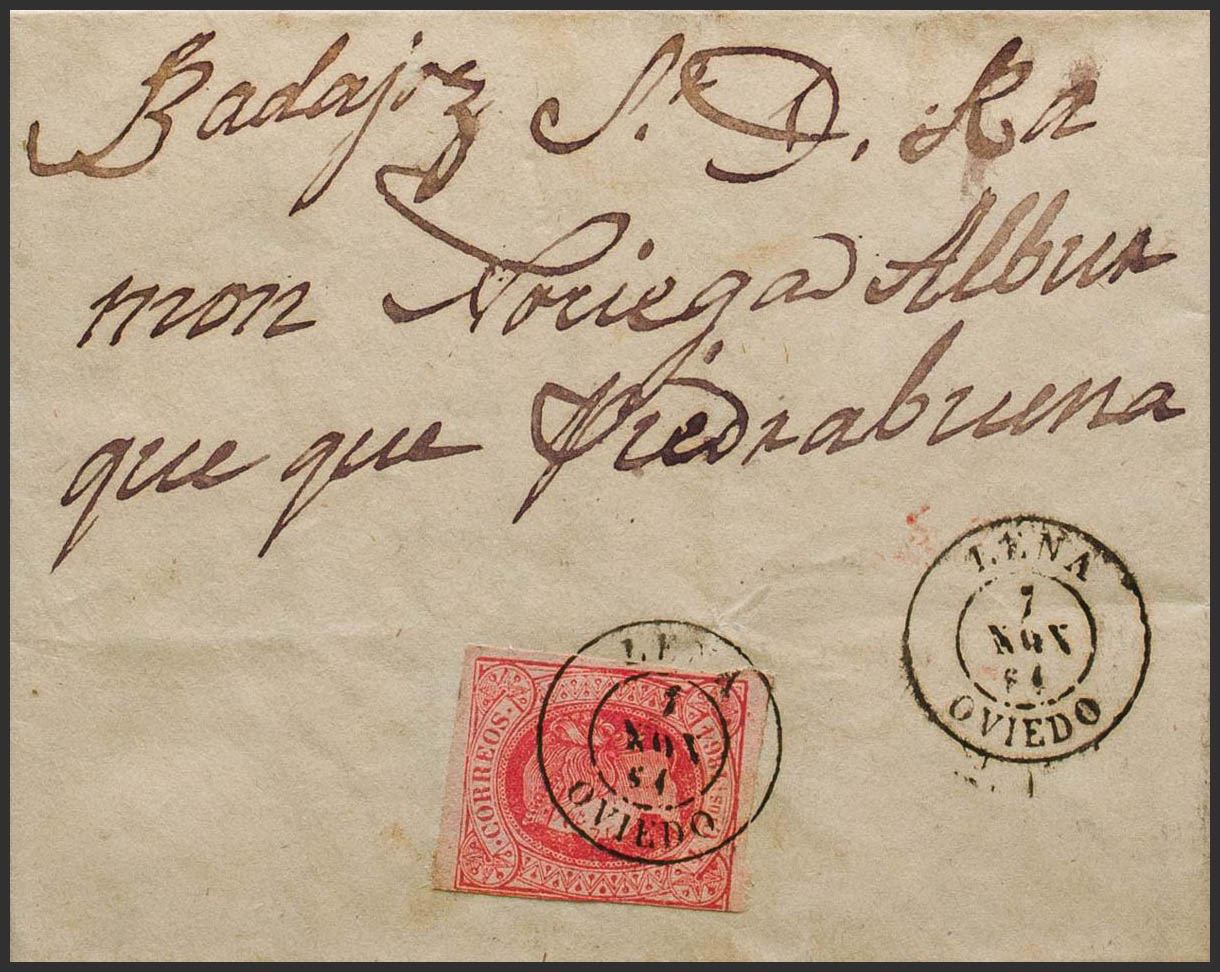 Badajoz Sr. D. Ra
mon Noriega Albur
que que Piedrabuena
LENA
7
NOV
64
OVIEDO
LENA
7
NOV
64
OVIEDO
CORREOS.
1198
OS